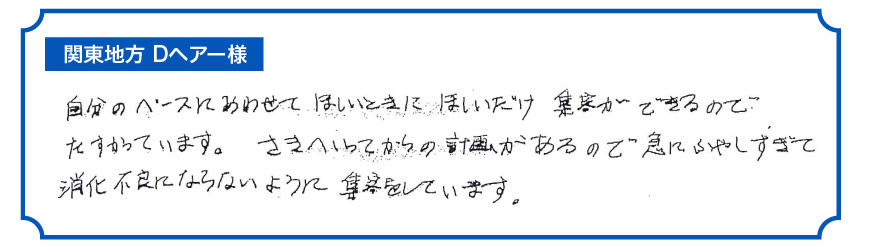 関東地方 Dヘアー様
自分のペースにあわせて ほしいときに ほしいだけ 集客が できるので
たすかっています。 さきへいってからの計画があるので 急にふやしすぎて
消化不良にならないように 集客をしています。